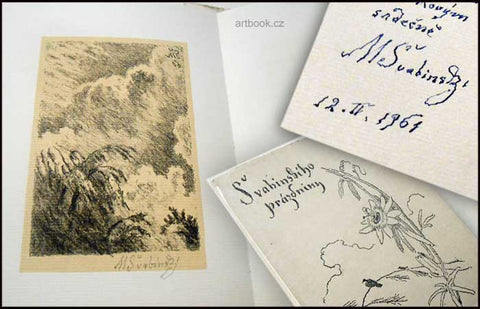 artbook.cz
srdečně
MŠvabinský
12. II. 1961
Švabinského
prázdniny
MŠvabinský